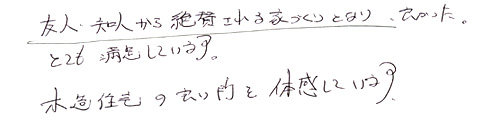 友人・知人から絶賛される家づくりとなり、良かった。
とても満足している。
木造住宅の良い所を体感している。